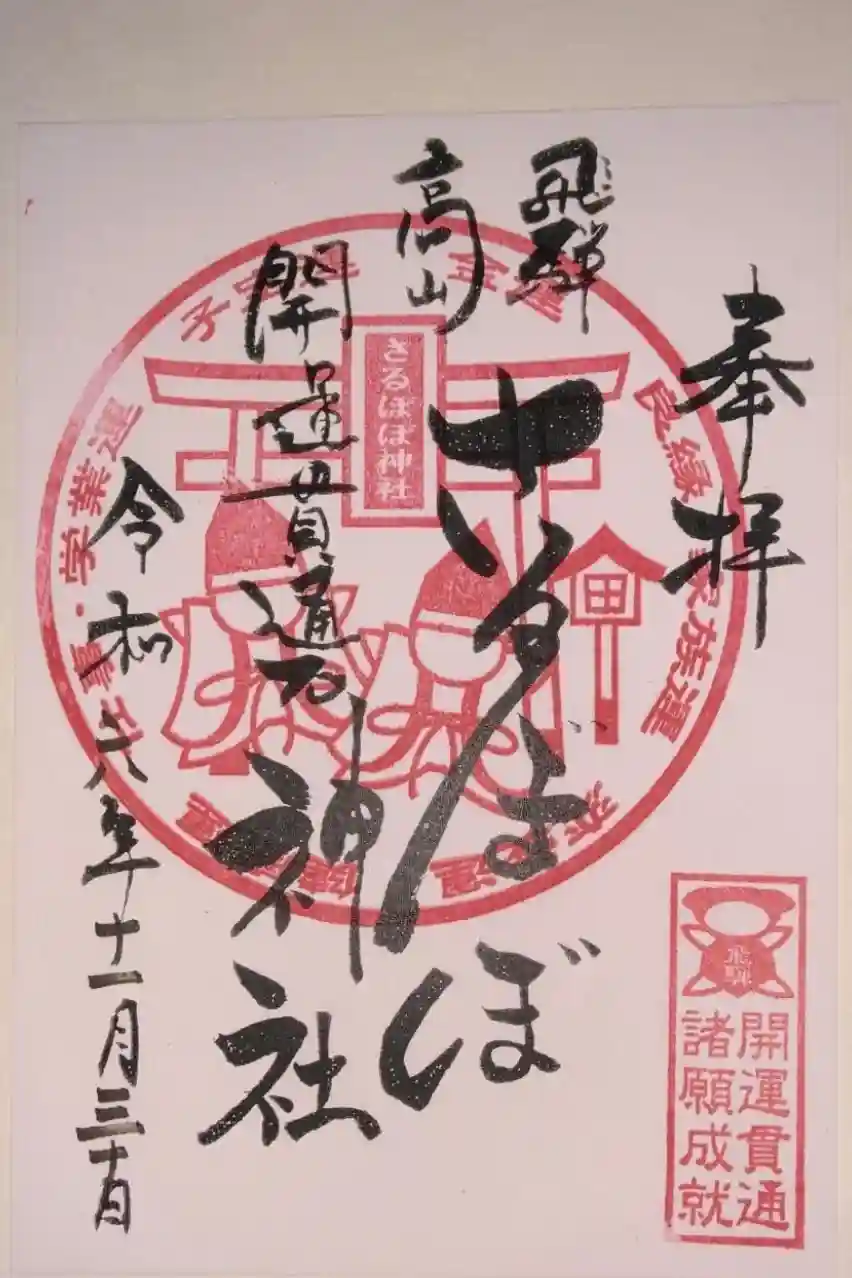 奉拝
飛騨
高山
さるぼぼ
神社
開運貫通石
令和六年十一月三十日
さるぼぼ神社
子宝運
金運
良縁
家族運
仕事・学業運
飛騨
開運貫通
諸願成就